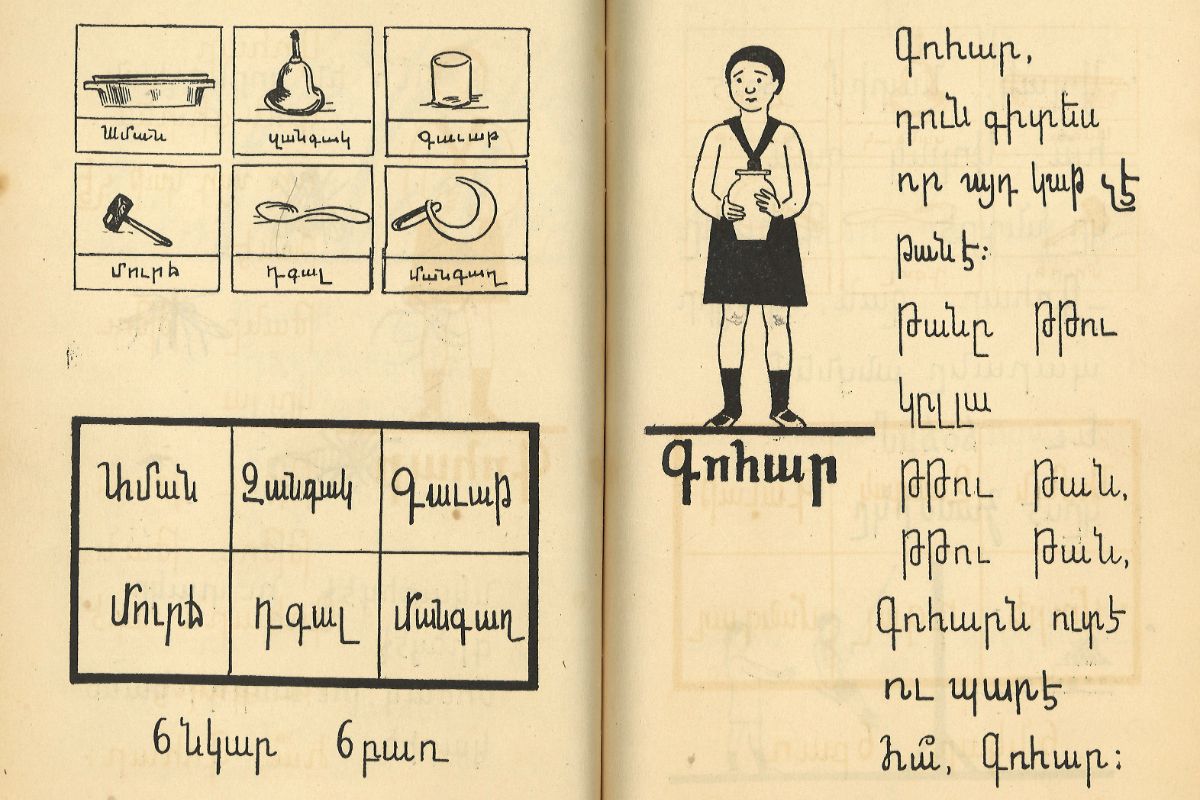 Աման զանգակ գաւաթ
մուրճ դգալ մանգաղ
Աման Զանգակ Գաւաթ
Մուրճ Դգալ Մանգաղ
6 նկար 6 բառ
Գոհար
Գոհար,
դուն գիտես
որ այդ կաթ չէ
թան է։
Թանը թթու
կըլլա
Թթու թան,
Թթու թան,
Գոհարն ուտէ
ու պարէ
հա՜, Գոհար։